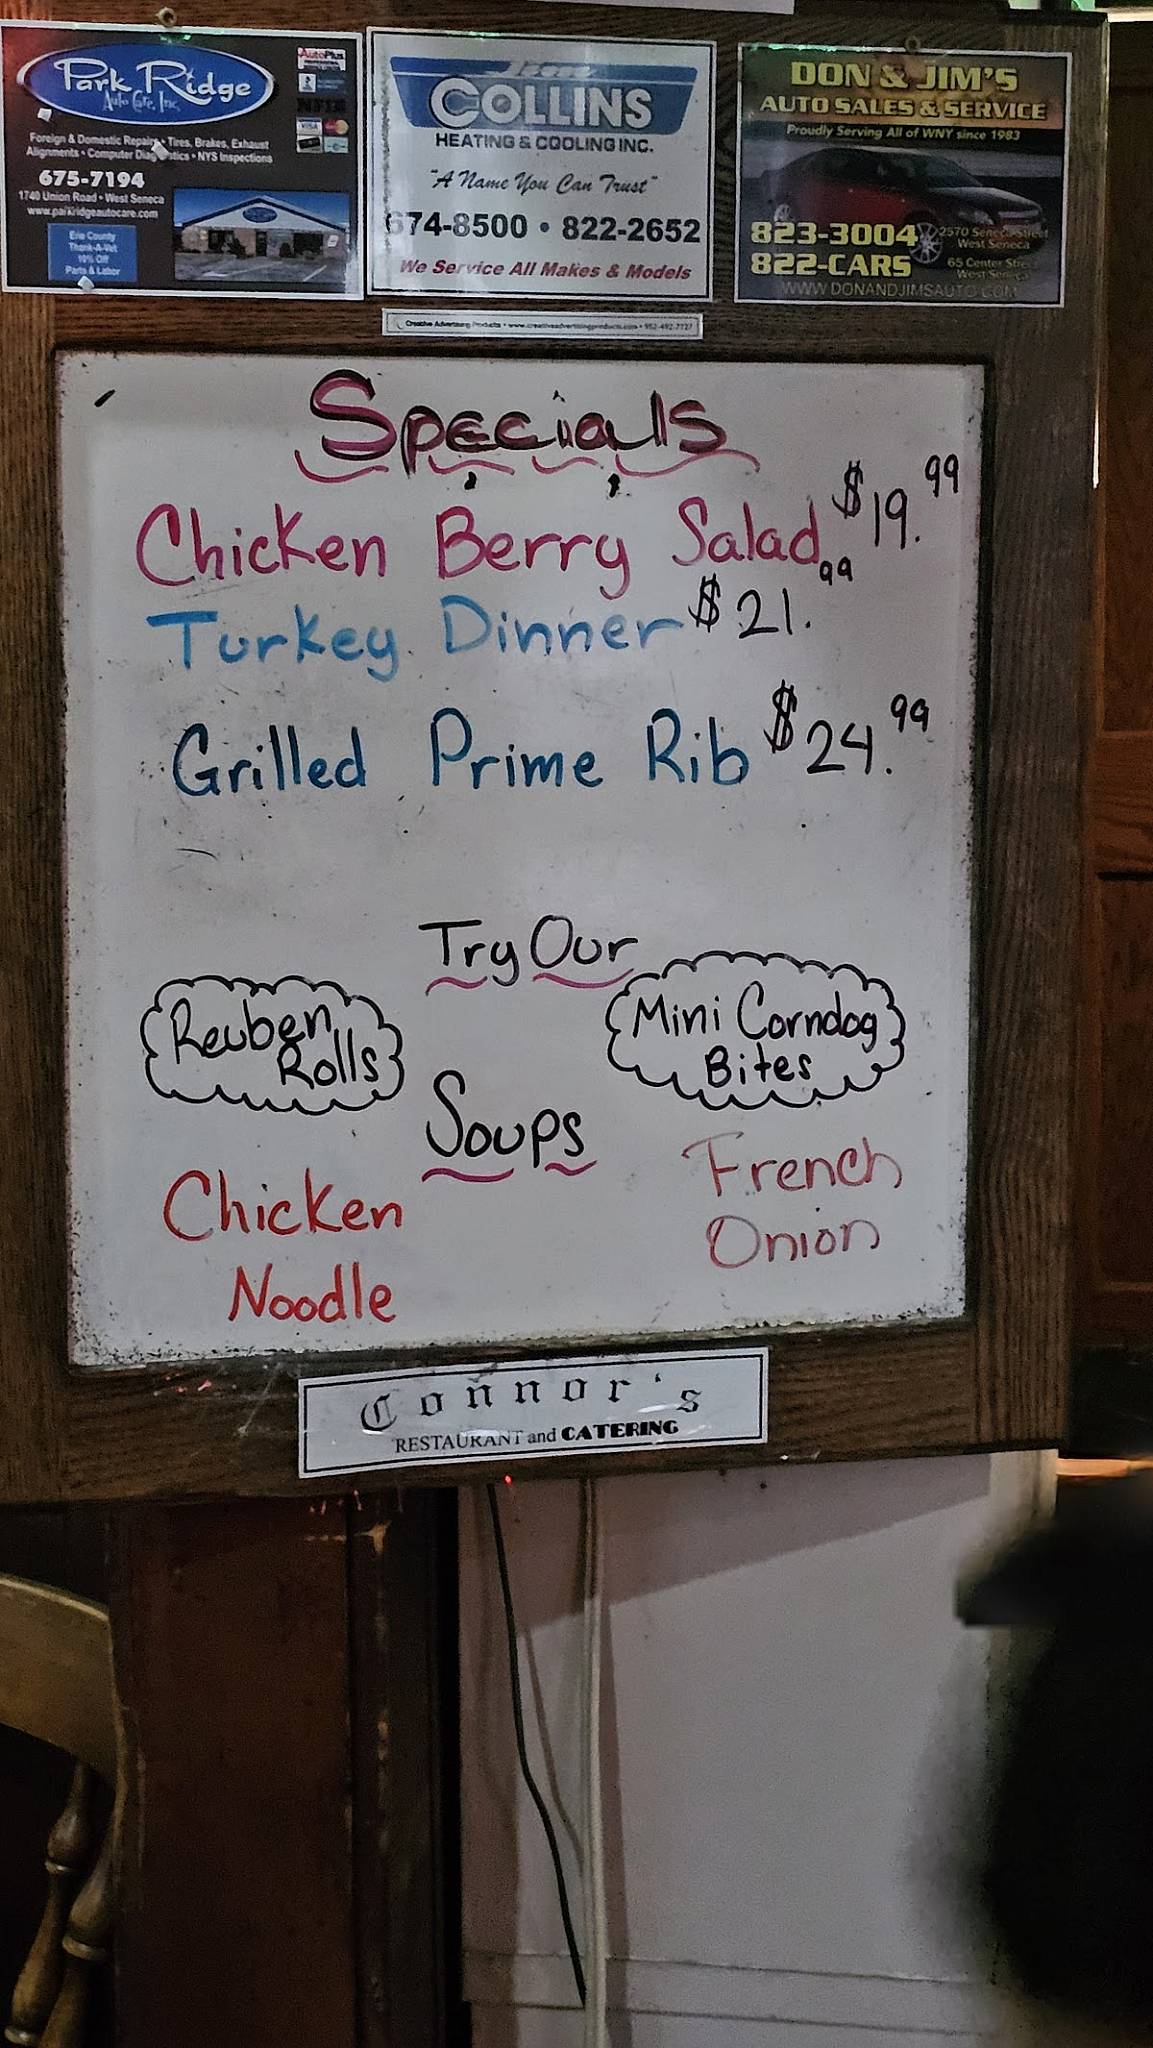 Park Ridge
Auto Care, Inc.
AutoPlus
VISA
Foreign & Domestic Repairs • Tires, Brakes, Exhaust
Alignments • Computer Diagnostics • NYS Inspections
675-7194
1740 Union Road • West Seneca
www.parkridgeautocare.com
Erie County
Thank-A-Vet
10% Off
Parts & Labor
COLLINS
HEATING & COOLING INC.
"A Name You Can Trust"
674-8500 • 822-2652
We Service All Makes & Models
DON & JIM'S
AUTO SALES & SERVICE
Proudly Serving All of WNY since 1983
823-3004
2570 Seneca Street
West Seneca
822-CARS
65 Center Street
West Seneca
WWW.DONANDJIMSAUTO.COM
Creative Advertising Products • www.creativeadvertisingproducts.com • 952-492-7727
Specials
Chicken Berry Salad $19.99
Turkey Dinner $21.99
Grilled Prime Rib $24.99
Try Our
Reuben
Rolls
Mini Corndog
Bites
Soups
Chicken
Noodle
French
Onion
Connor's
RESTAURANT and CATERING